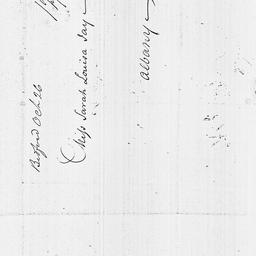 Bedford Oct 26
Miss Sarah Louisa Jay
Albany